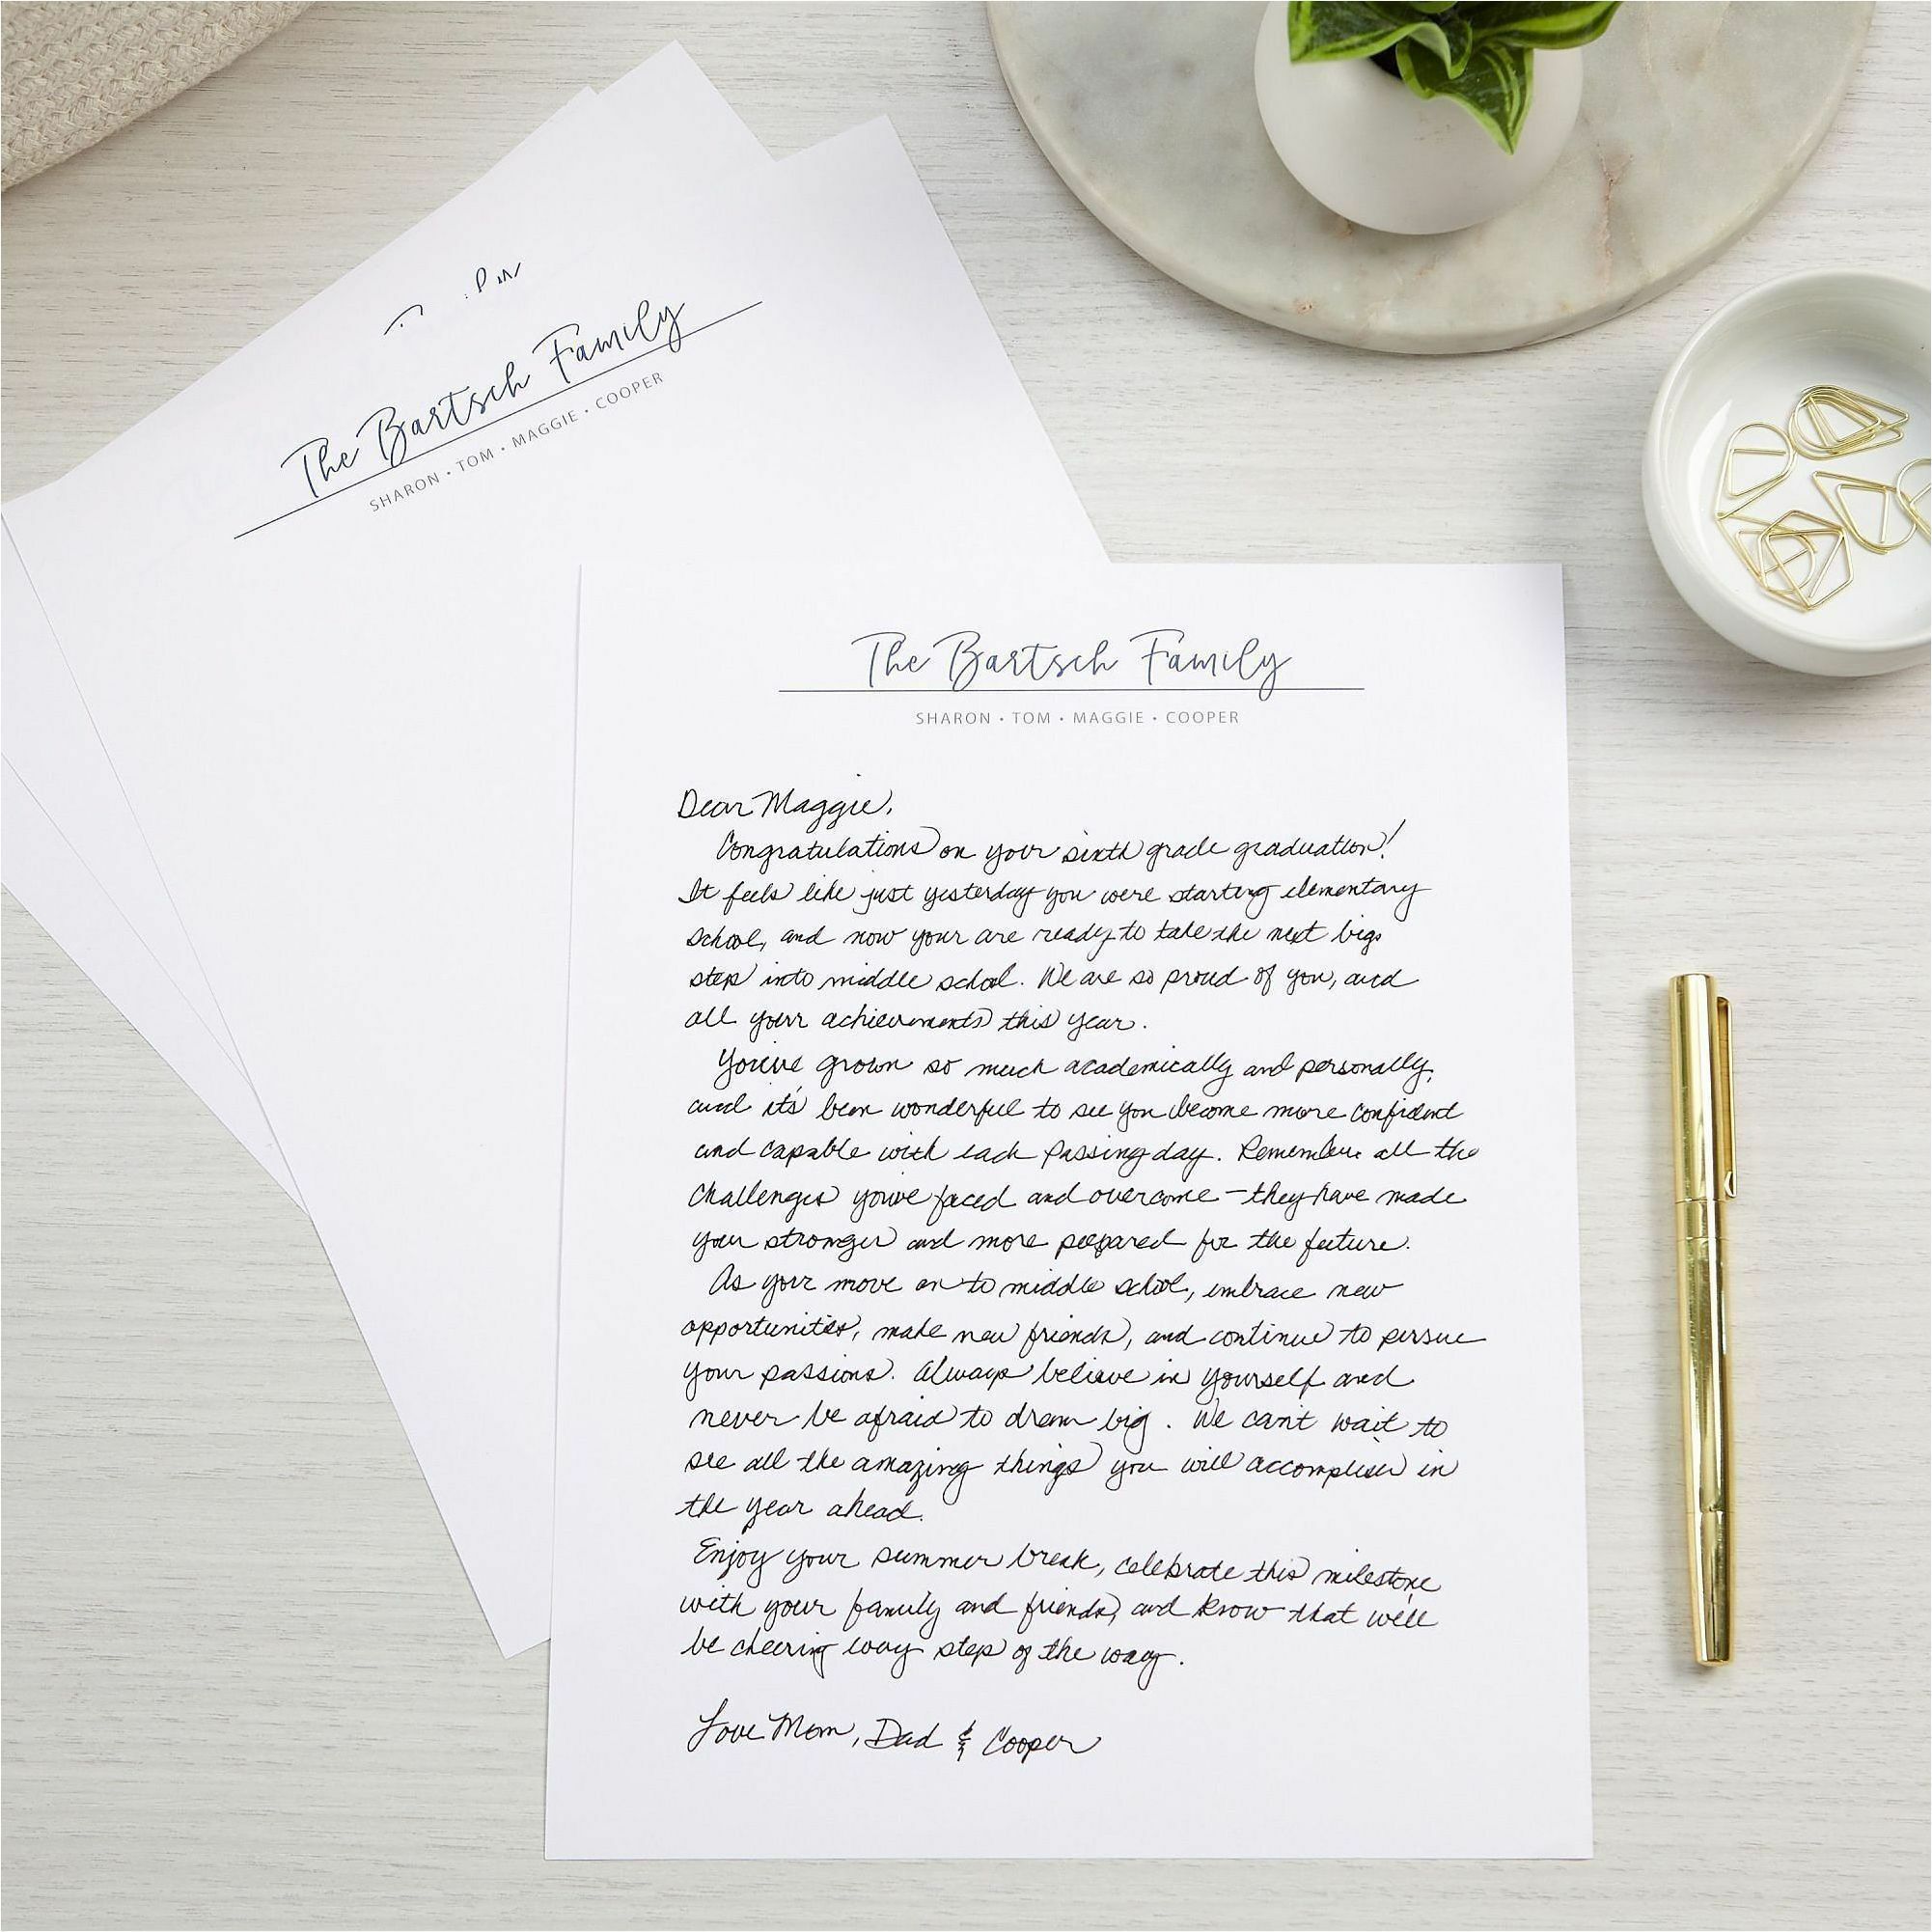 The Bartsch Family
SHARON • TOM • MAGGIE • COOPER
The Bartsch Family
SHARON • TOM • MAGGIE • COOPER
Dear Maggie,
Congratulations on your sixth grade graduation!
It feels like just yesterday you were starting elementary
school, and now your are ready to take the next big
step into middle school. We are so proud of you, and
all your achievements this year.
You've grown so much academically and personally,
and it's been wonderful to see you become more confident
and capable with each passing day. Remember all the
challenges you've faced and overcome – they have made
you stronger and more prepared for the future.
As your move on to middle school, embrace new
opportunities, make new friends, and continue to pursue
your passions. Always believe in yourself and
never be afraid to dream big. We can't wait to
see all the amazing things you will accomplish in
the year ahead.
Enjoy your summer break, celebrate this milestone
with your family and friends, and know that we'll
be cheering every step of the way.
Love Mom, Dad & Cooper